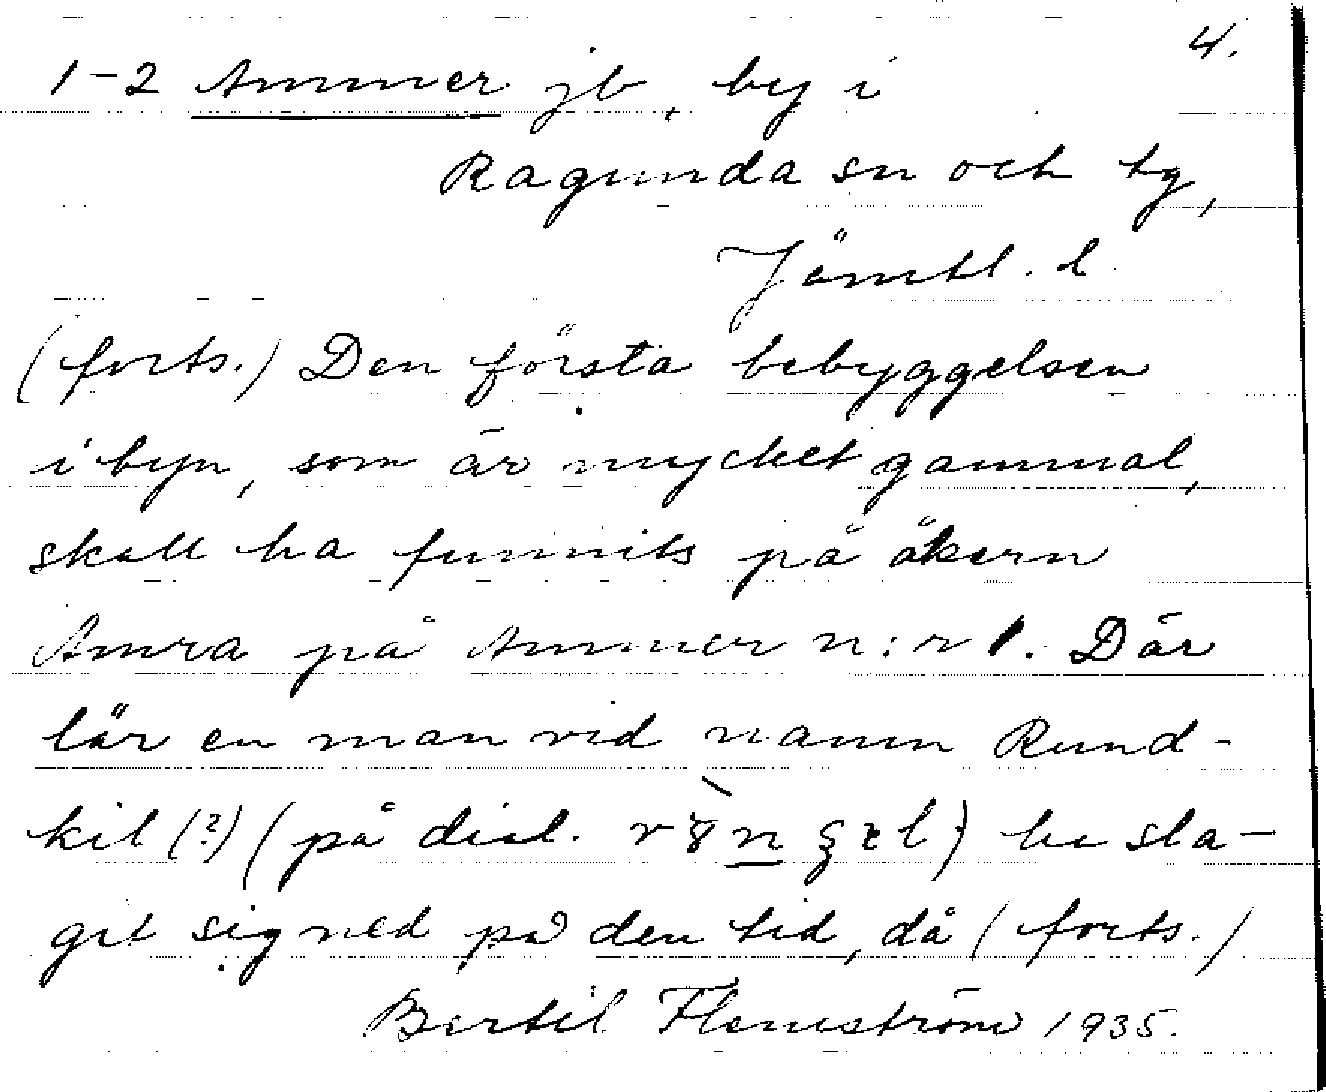 4.
1-2 Ammer jb, by i
Ragunda sn och tg,
Jämtl. l.
(forts.) Den första bebyggelsen
i byn, som är mycket gammal,
skall ha funnits på åkern
Amra på Ammer n:r 1. Där
lär en man vid namn Rund-
kil (?) (på dial.) ha sla-
git sig ned på den tid, då (forts.)
Bertil Flemström 1935.